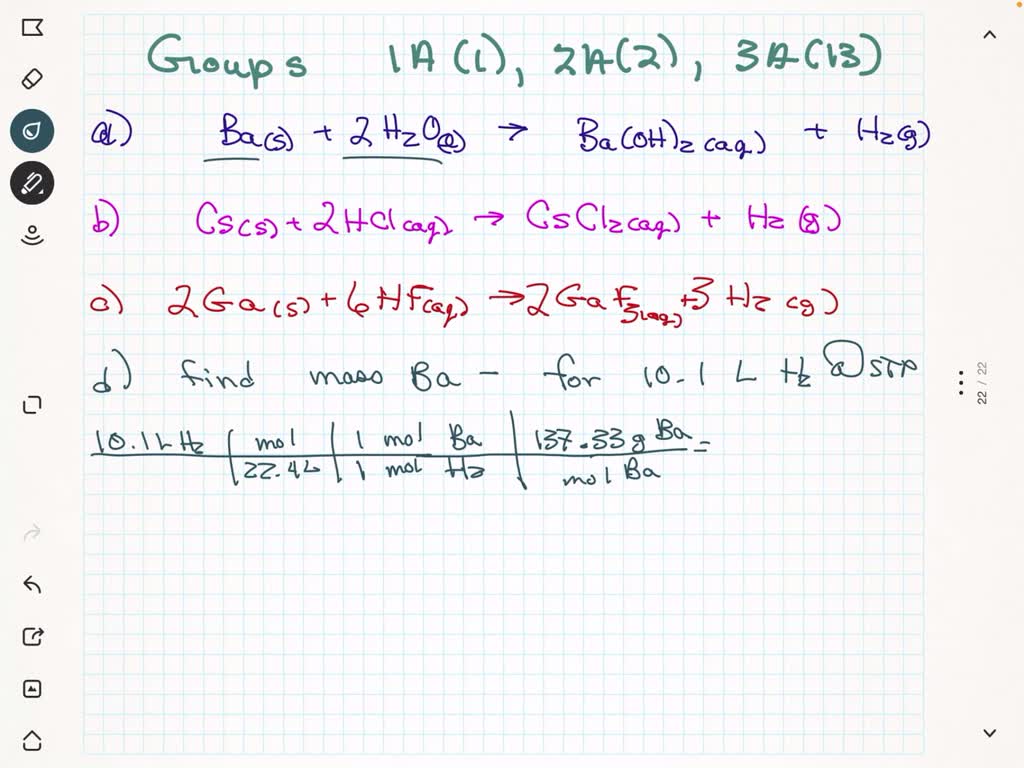 Groups 1A(1), 2A(2), 3A(13)
a) Ba(s) + 2H₂O(l) → Ba(OH)₂(aq) + H₂(g)
b) Cs(s) + 2HCl(aq) → CsCl₂(aq) + H₂(g)
c) 2Ga(s) + 6HF(aq) → 2GaF₃(aq) + 3H₂(g)
d) find mass Ba - for 10.1 L H₂ @ STP
10.1L H₂ | mol | 1 mol Ba | 137.33g Ba =
22.4L | 1 mol H₂ | mol Ba
22 / 22